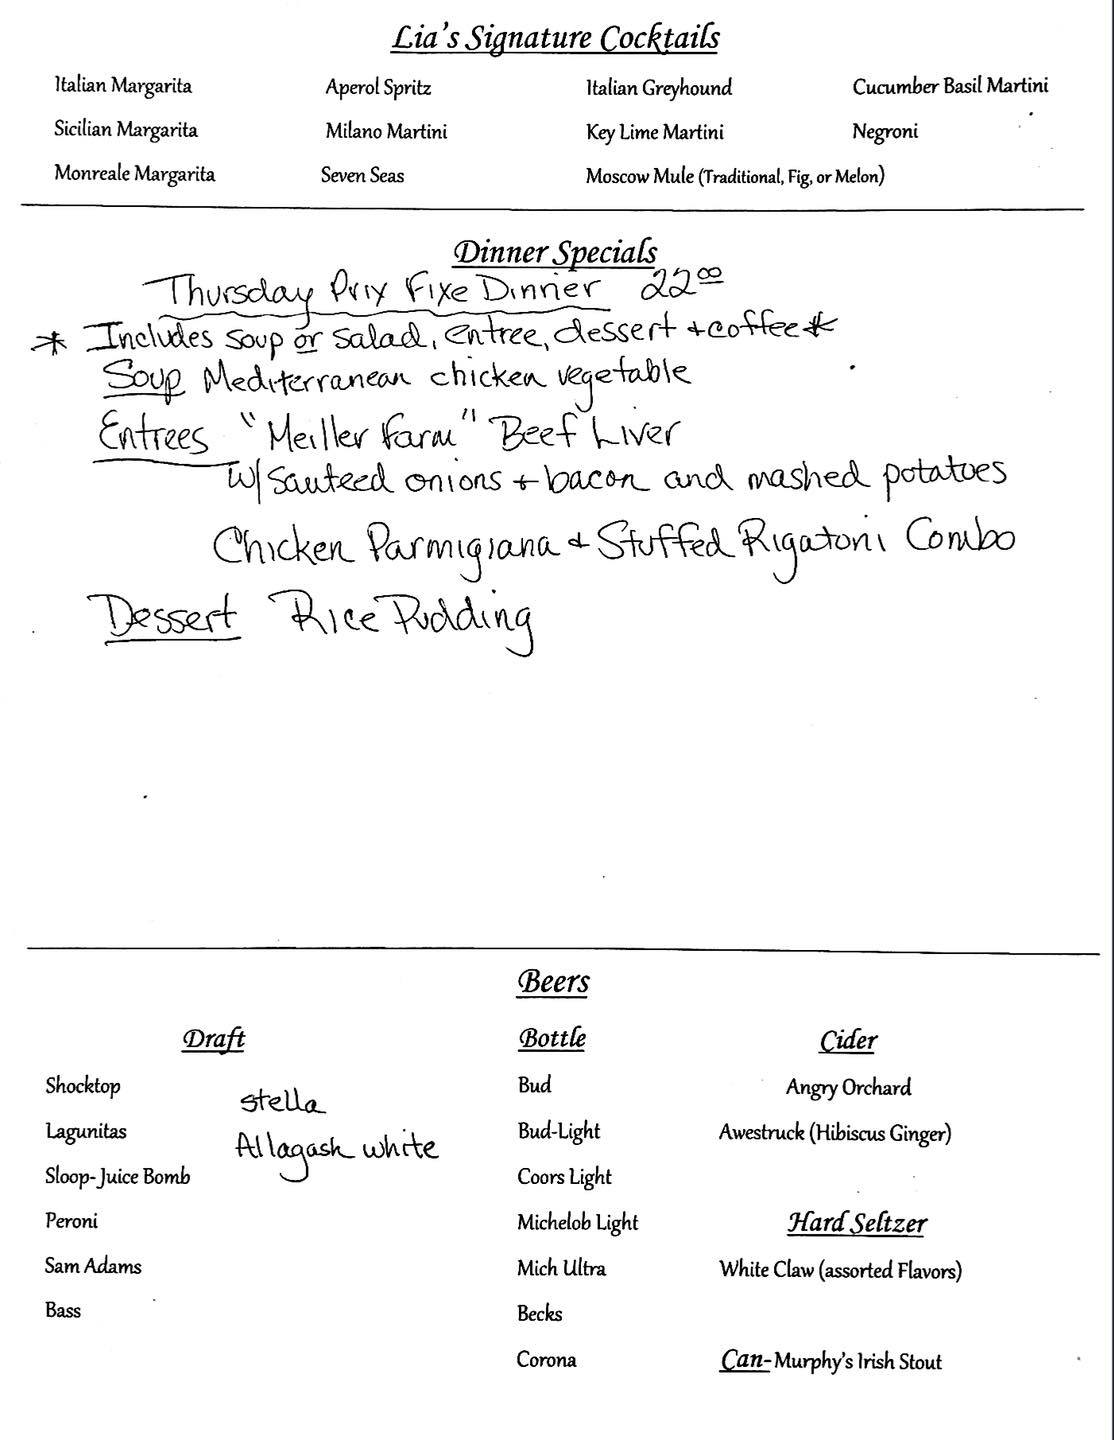 Lia's Signature Cocktails
Italian Margarita Aperol Spritz Italian Greyhound Cucumber Basil Martini
Sicilian Margarita Milano Martini Key Lime Martini Negroni
Monreale Margarita Seven Seas Moscow Mule (Traditional, Fig, or Melon)
Dinner Specials
Thursday Prix Fixe Dinner 22⁰⁰
* Includes soup or salad, entree, dessert + coffee *
Soup Mediterranean chicken vegetable
Entrees "Meiller Farm" Beef Liver
w/ Sauteed onions + bacon and mashed potatoes
Chicken Parmigiana + Stuffed Rigatoni Combo
Dessert Rice Pudding
Beers
Draft Bottle Cider
Shocktop stella Bud Angry Orchard
Lagunitas Allagash white Bud-Light Awestruck (Hibiscus Ginger)
Sloop-Juice Bomb Coors Light
Peroni Michelob Light Hard Seltzer
Sam Adams Mich Ultra White Claw (assorted Flavors)
Bass Becks
Corona Can-Murphy's Irish Stout